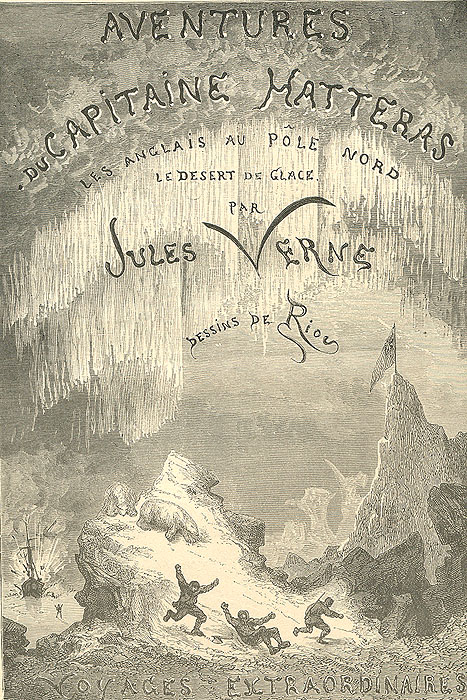 AVENTURES
DU CAPITAINE HATTERAS
LES ANGLAIS AU PÔLE NORD
LE DESERT DE GLACE.
PAR
JULES VERNE
DESSINS DE RIOU
VOYAGES EXTRAORDINAIRES